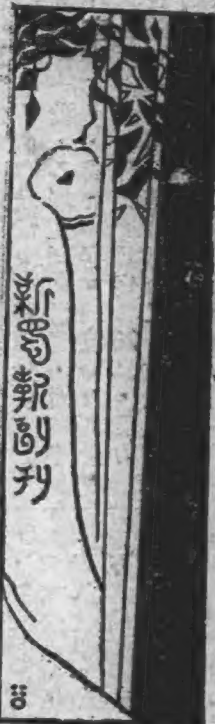 新蜀報副刊